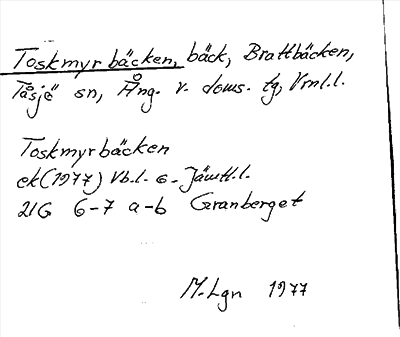 Toskmyrbäcken, bäck, Brattbäcken,
Tåsjö sn, Ång. v. doms. tg, Vrnl.l.
Toskmyrbäcken
ek (1977) Vb.l. o. Jämtl.l.
21G 6-7 a-b Granberget
M. Lgn 1977